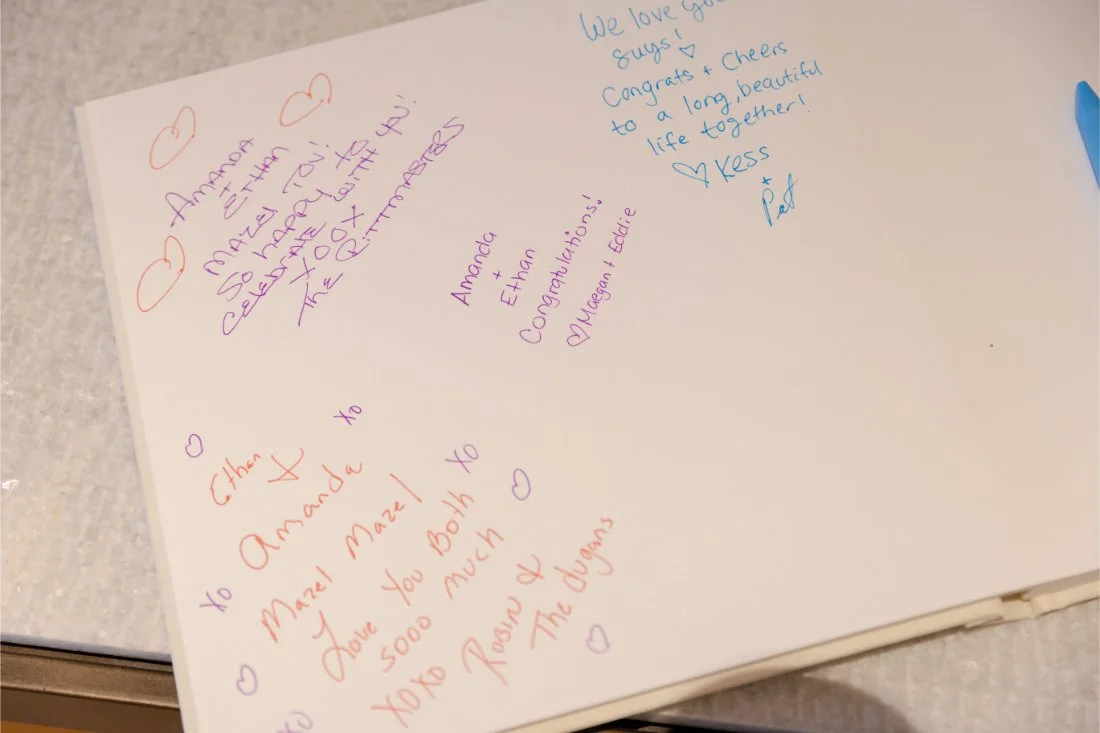 AMANDA
+
ETHAN
MAZEL TOV!
SO HAPPY TO
CELEBRATE WITH YOU!
XOOX
THE RITTMASTERS
We love you
guys!
Congrats + Cheers
to a long, beautiful
life together!
Kess
+
Pat
Amanda
+
Ethan
Congratulations!
Maegan + Eddie
XO
Ethan
&
Amanda
Mazel Mazel
XO
Love You Both
sooo much
XOXO
Robin &
The dugans
XO
XO